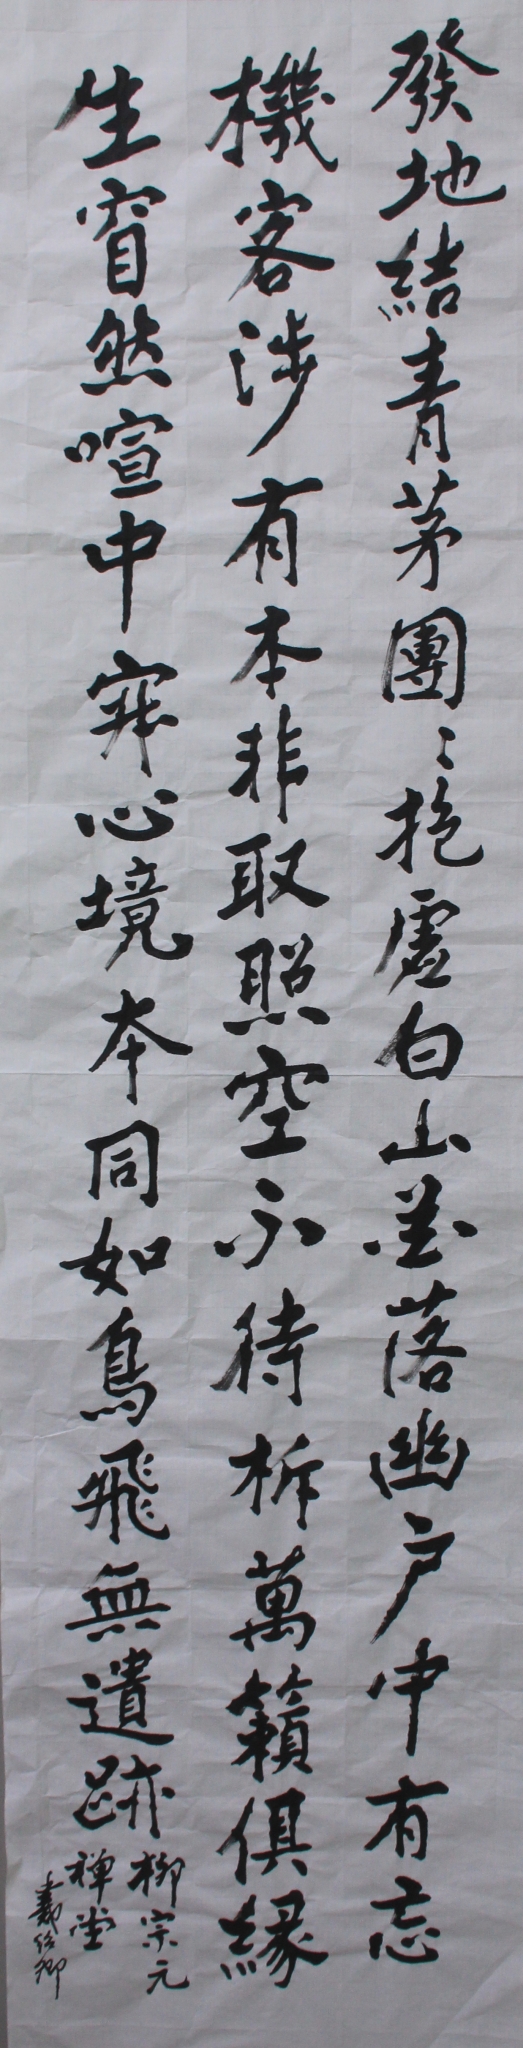 發地結青茅團〻抱虛白山花落幽户中有忘
機客涉有本非取照空不待析萬籟俱緣
生窅然喧中寂心境本同如鳥飛無遺跡
柳宗元
禅堂